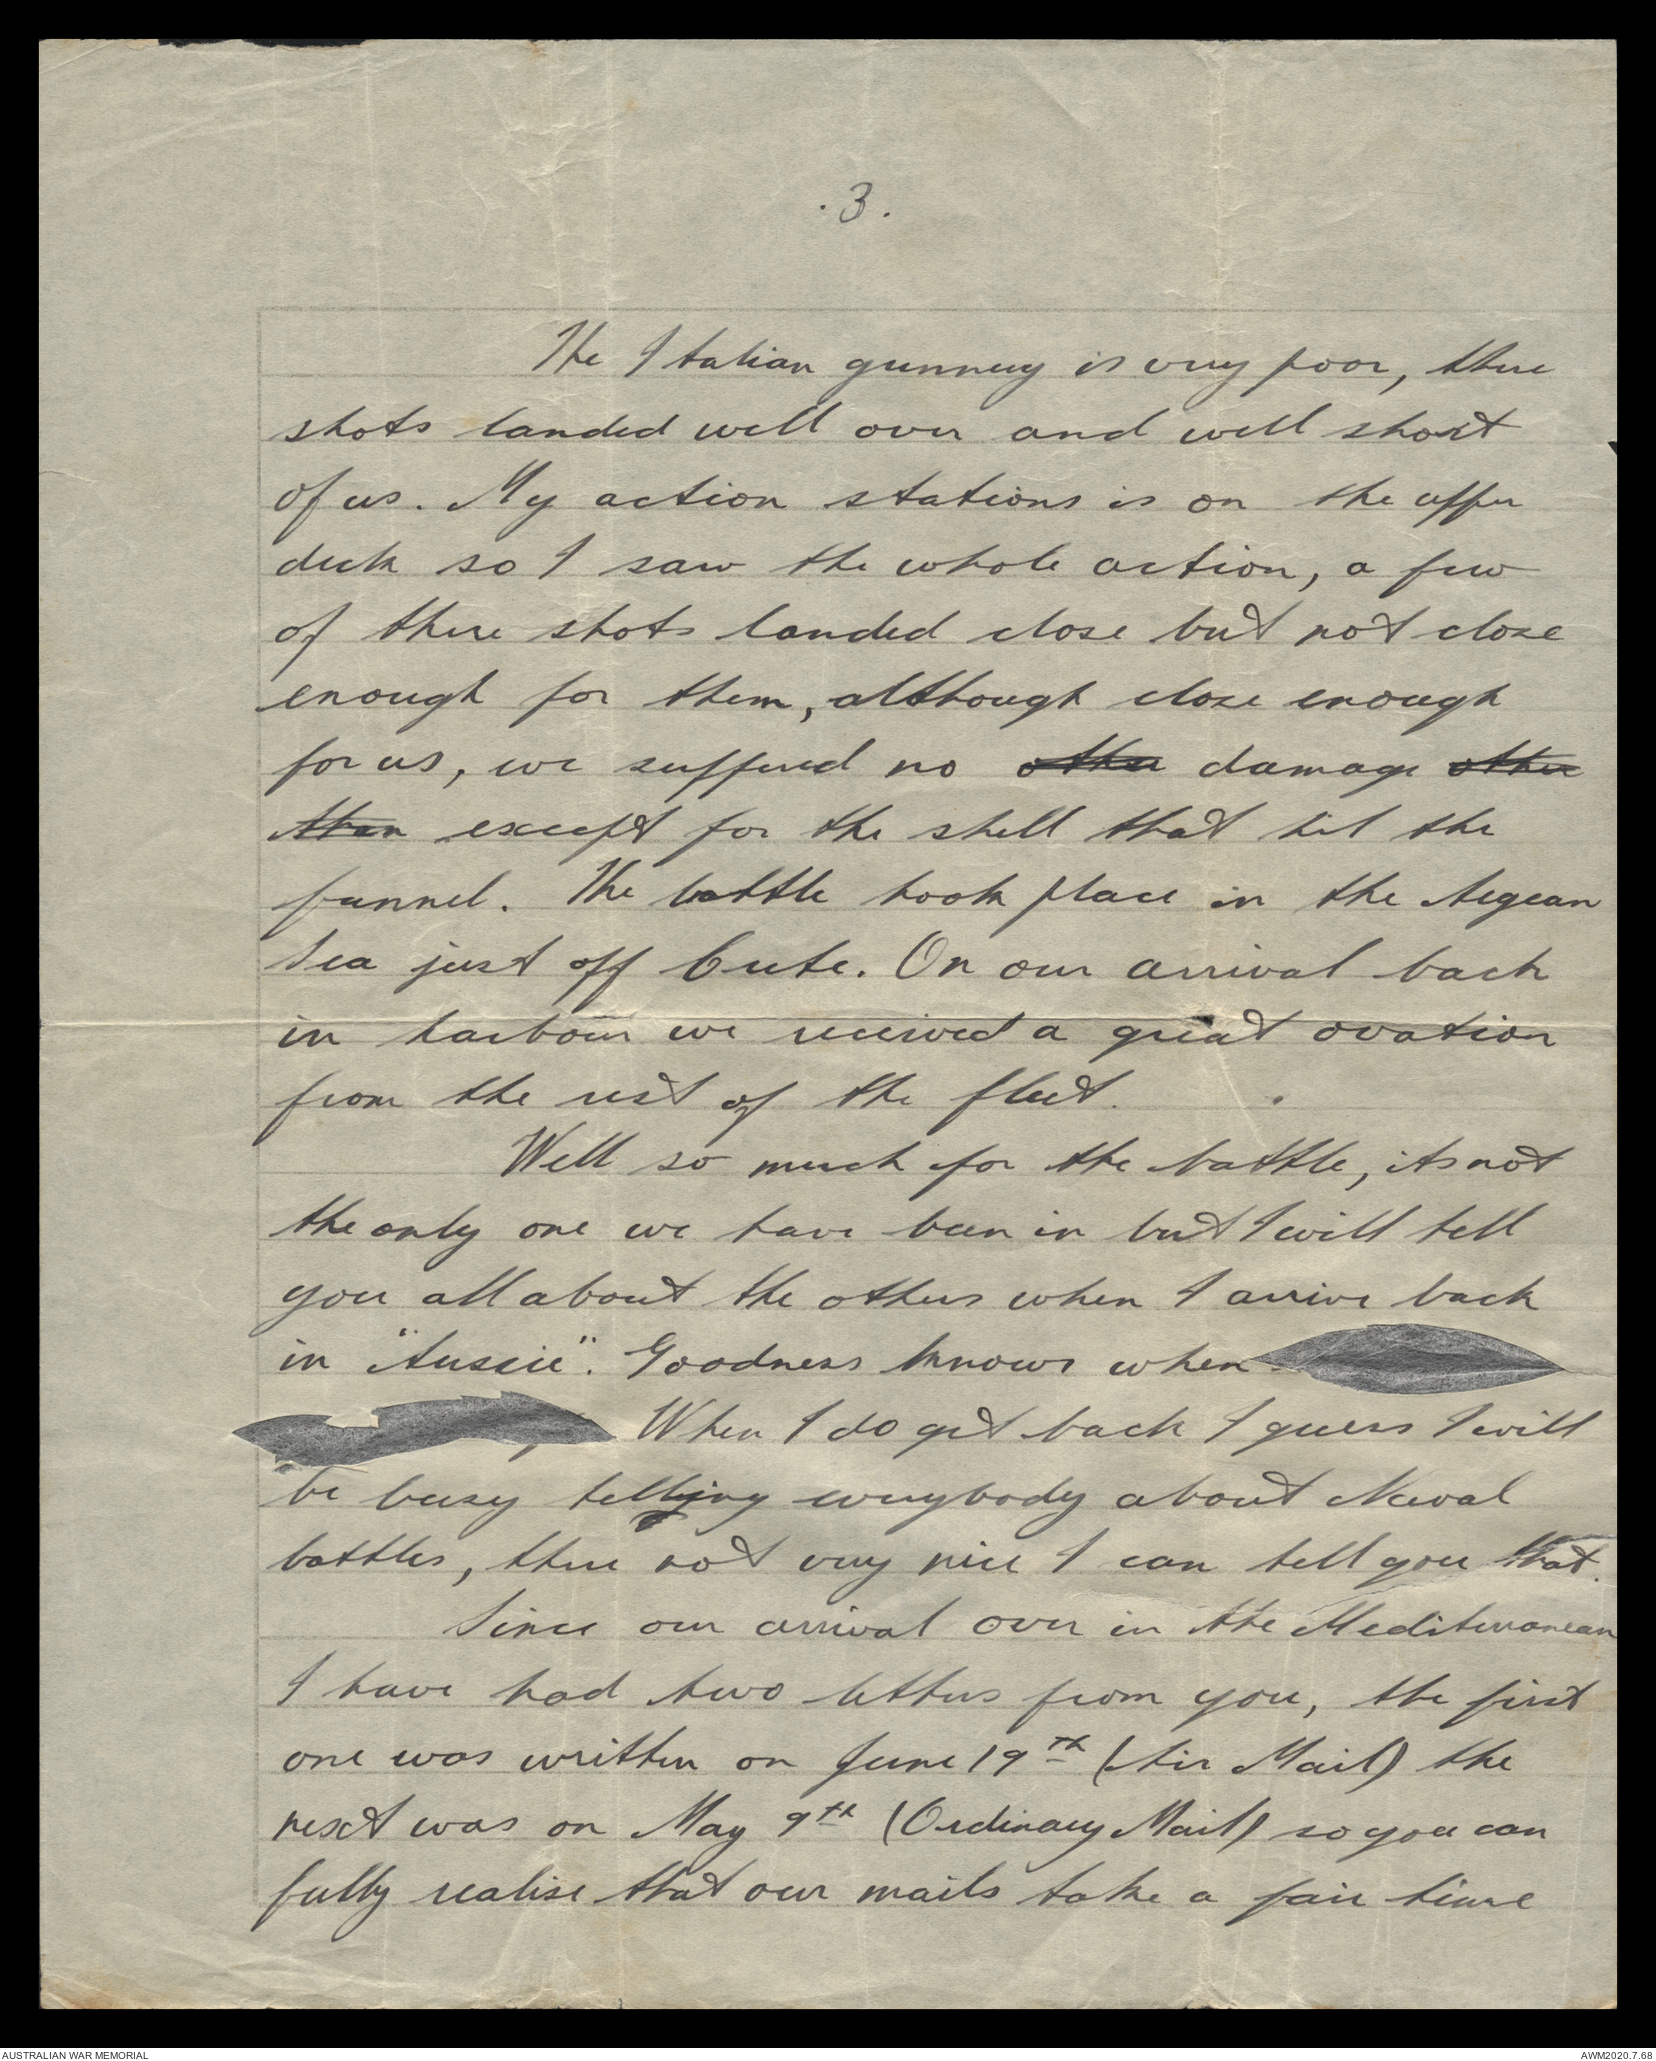 .3.
The Italian gunnery is very poor, there
shots landed well over and well short
of us. My action stations is on the upper
deck so I saw the whole action, a few
of there shots landed close but not close
enough for them, although close enough
for us, we suffered no other damage other
than except for the shell that hit the
funnel. The battle took place in the Aegean
Sea just off Crete. On our arrival back
in harbour we received a great ovation
from the rest of the fleet.
Well so much for the battle, its not
the only one we have been in but I will tell
you all about the others when I arrive back
in "Aussie". Goodness knows when
When I do get back I guess I will
be busy telling everybody about Naval
battles, there not very nice I can tell you that.
Since our arrival over in the Mediterranean
I have had two letters from you, the first
one was written on June 19th (Air Mail) the
next was on May 9th (Ordinary Mail) so you can
fully realise that our mails take a fair time
AUSTRALIAN WAR MEMORIAL
AWM2020.7.68